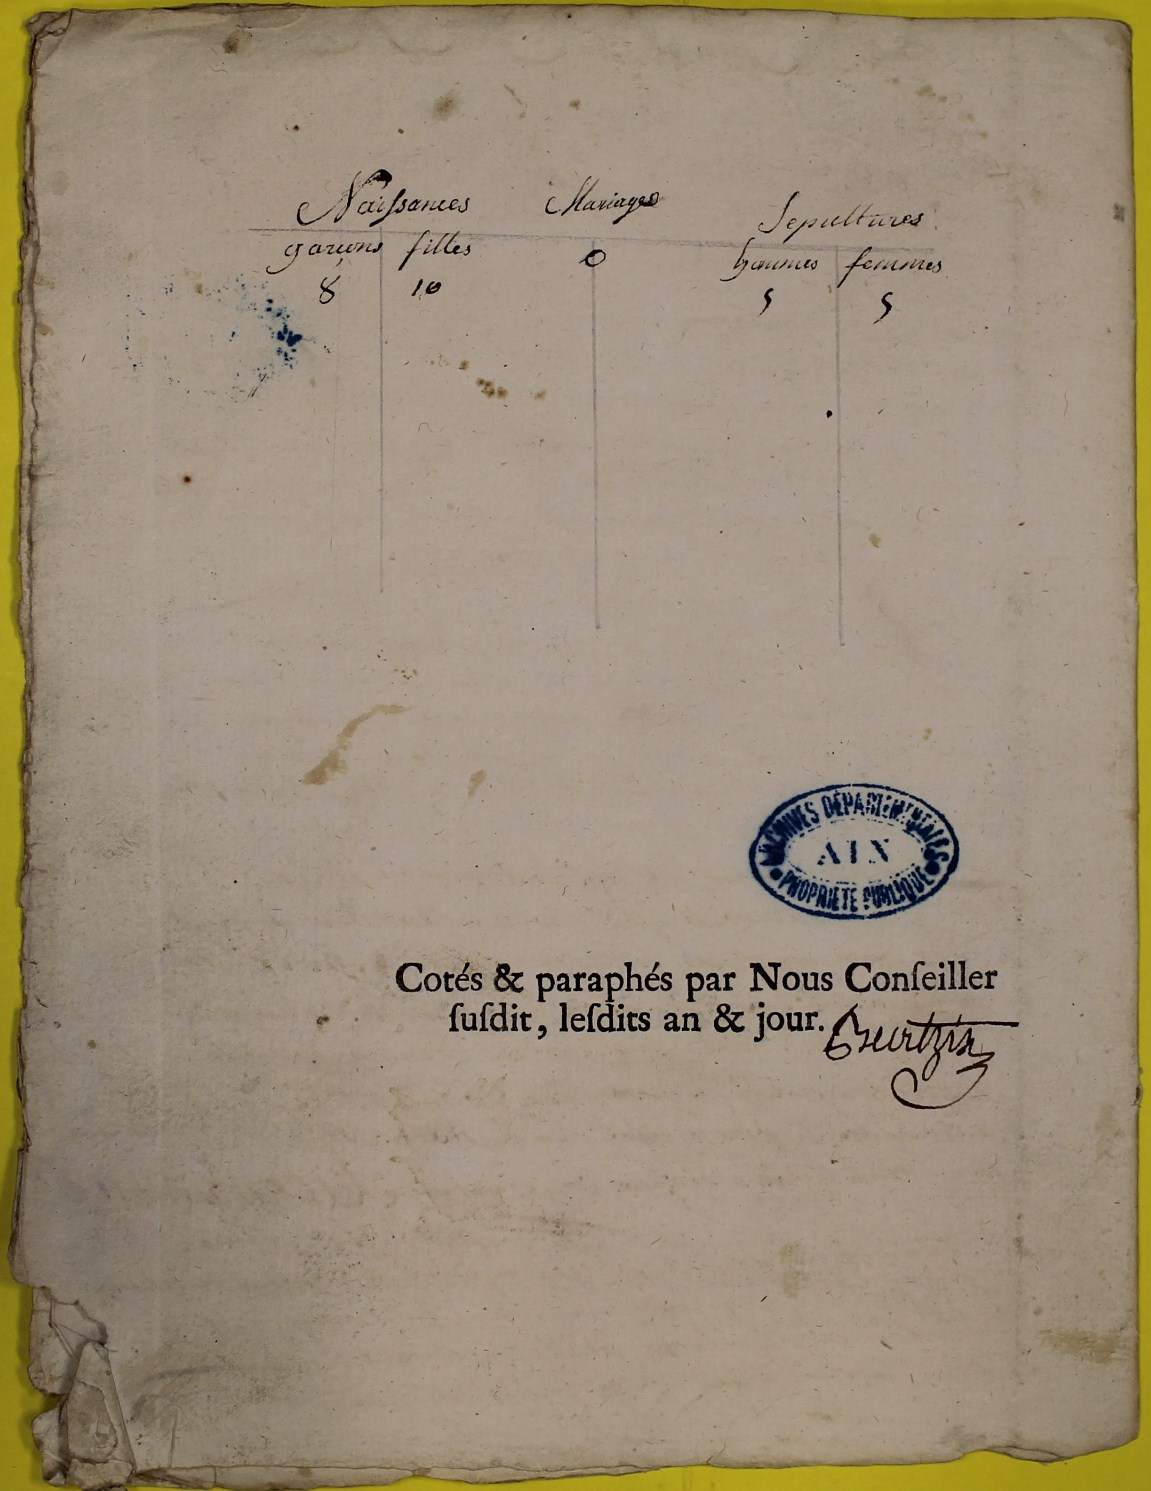 Naissances Mariages Sepultures
garçons filles 0 hommes femmes
8 10 5 5
ARCHIVES DÉPARTEMENTALES
AIX
PROPRIÉTÉ PUBLIQUE
Cotés & paraphés par Nous Conſeiller
ſuſdit, leſdits an & jour.